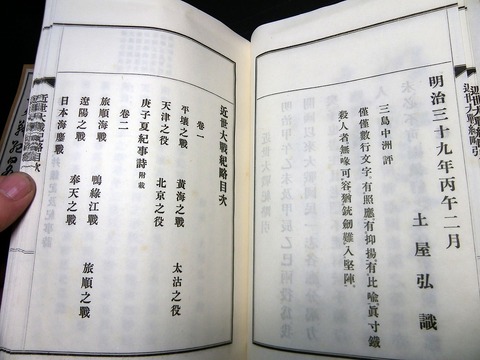 近世大戰紀略引
明治三十九年丙午二月
土屋弘識
三島中洲評
僅僅數行文字有照應有抑揚有比喩眞寸鐵
殺人者無喙可容猶銃劍難入堅陣
近世大戰紀略目次
卷一
平壤之戰 黃海之戰 太沽之役
天津之役 北京之役
庚子夏紀事詩 附載
卷二
旅順海戰 鴨綠江戰 旅順之戰
遼陽之戰 奉天之戰
日本海鏖戰
近世大戰紀略目次